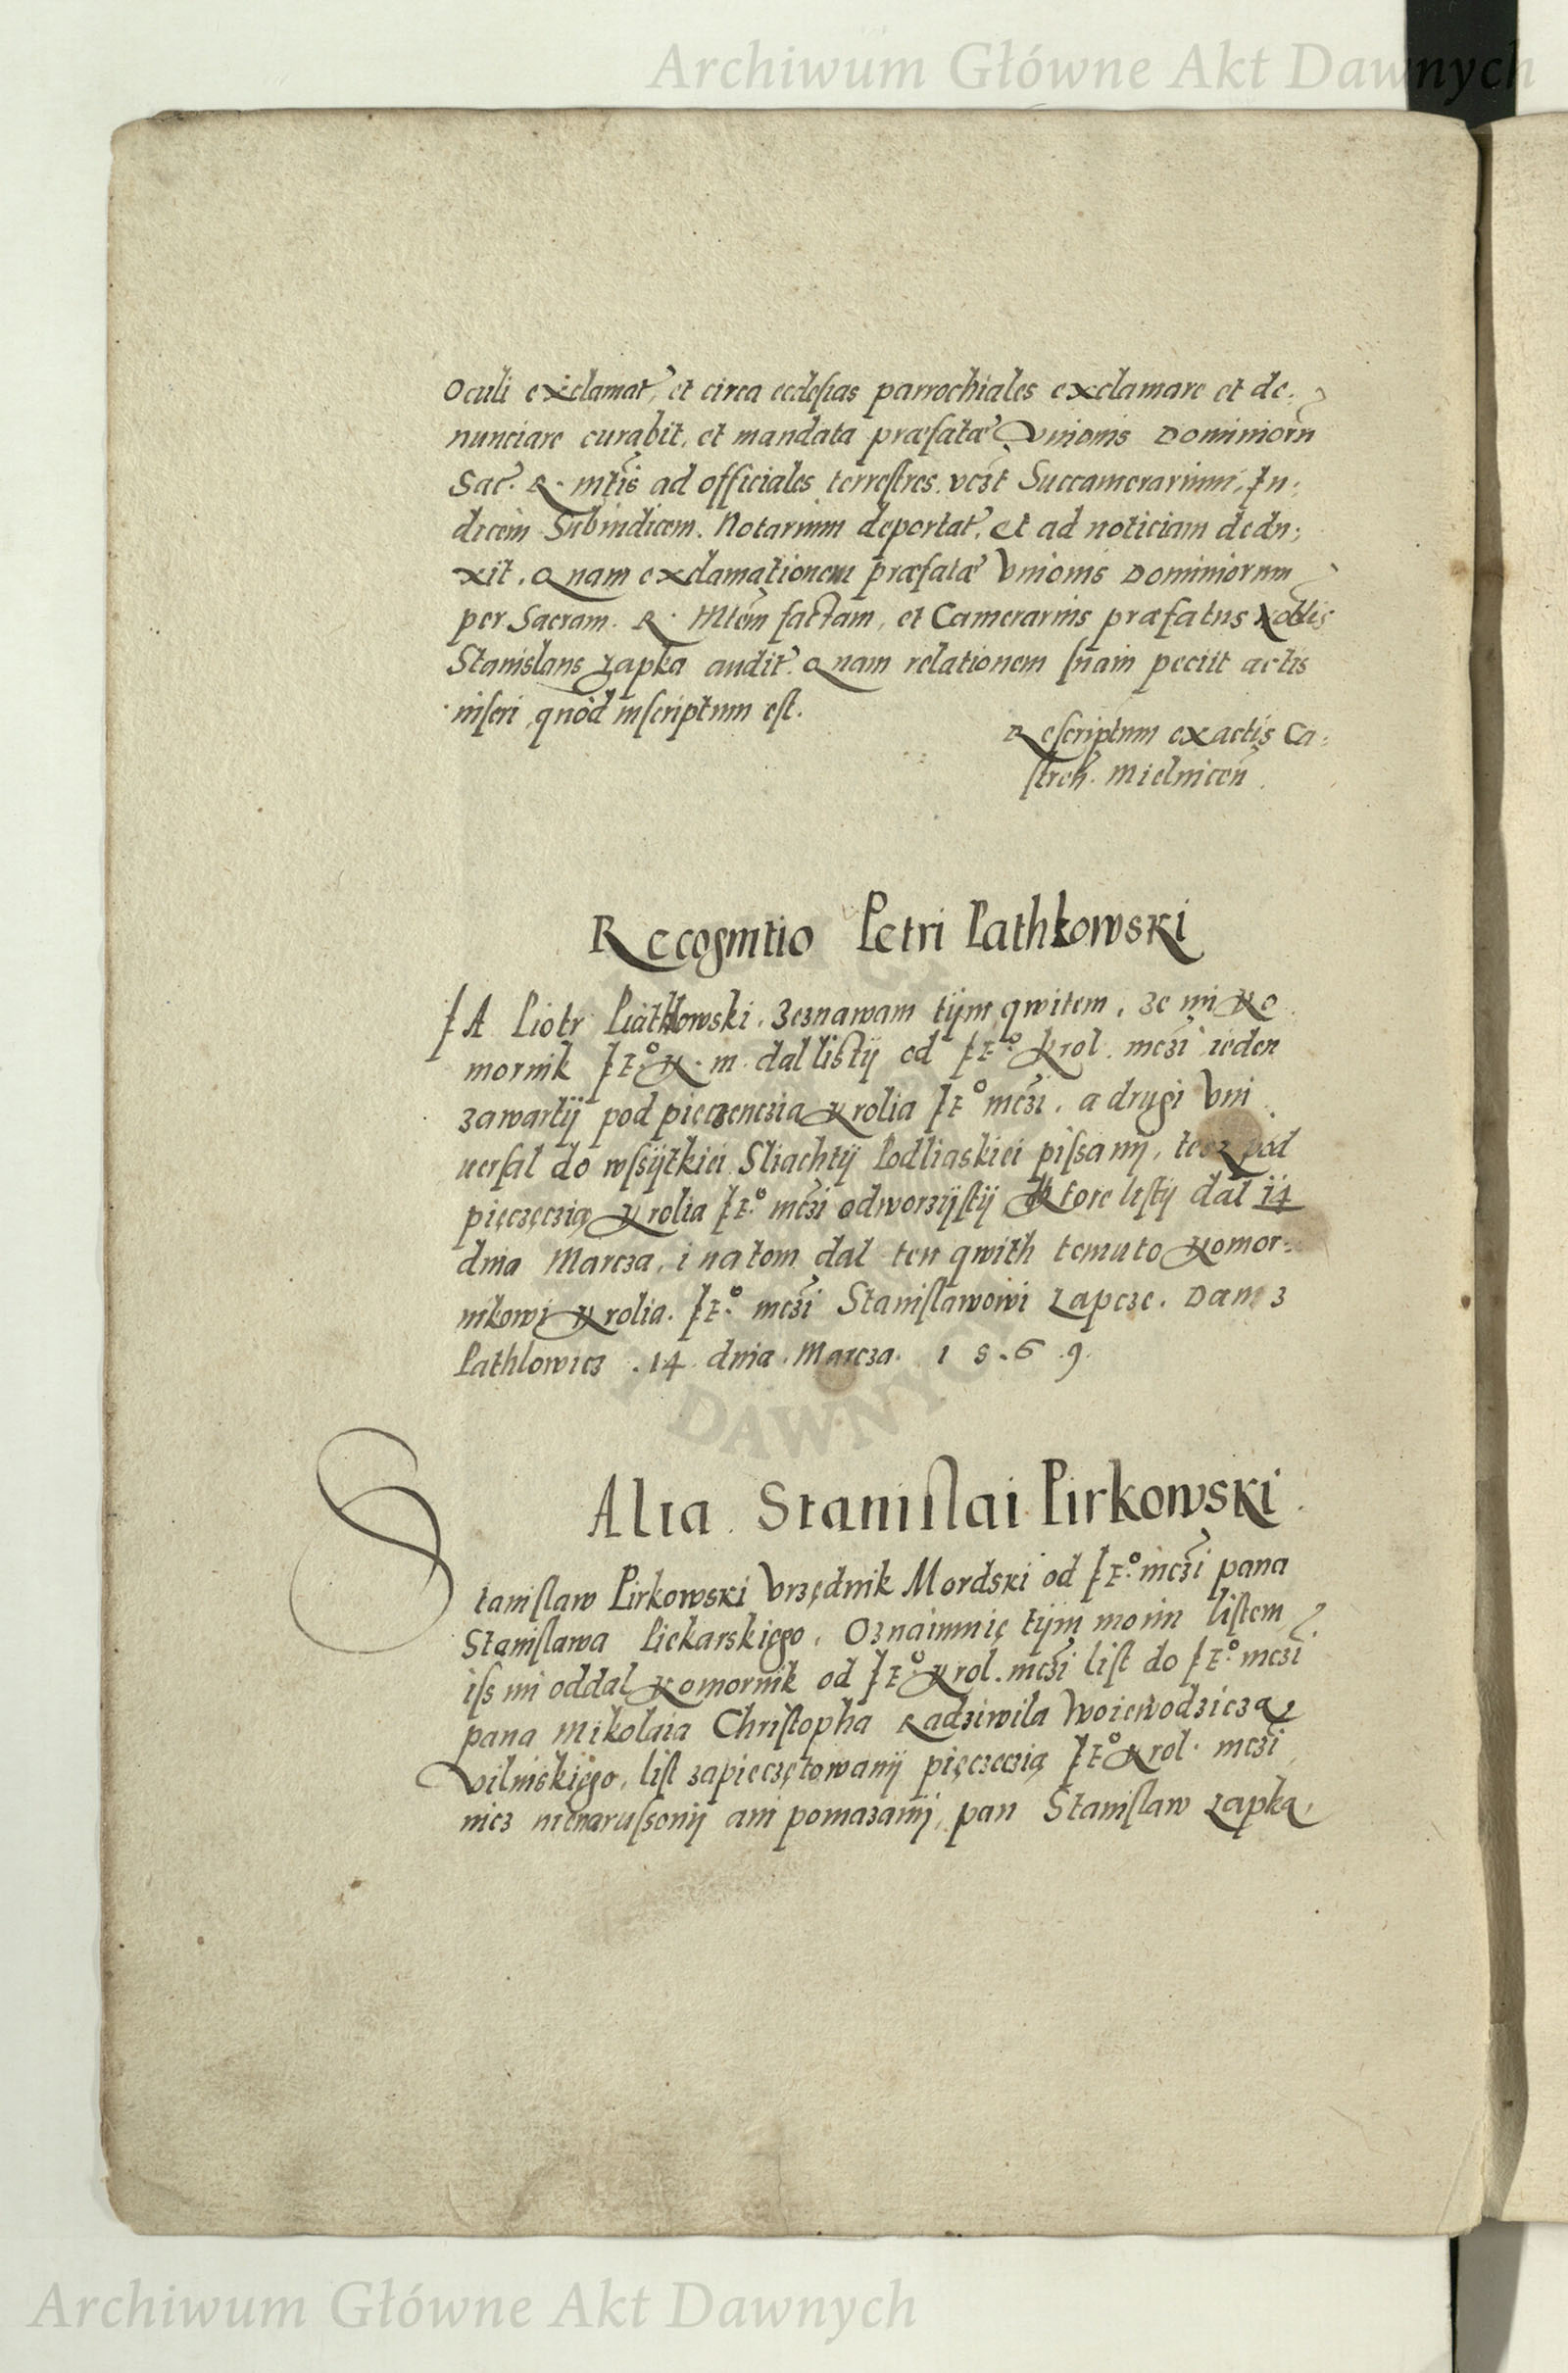 Archiwum Główne Akt Dawnych
Oculi exclamat, et circa ecclesias parrochiales exclamare et de-
nunciare curabit, et mandata præfatæ Vnionis Dominiorũ
Sac. R. mtis ad officiales terrestres. vczt Succamerarium, Iu-
dicem Subiudicem. Notarium deportat, et ad noticiam dedu-
xit. Quam exclamationem præfatæ Vnionis Dominiorum
per Sacram. R. Mtem factam, et Camerarius præfatus Noblis
Stanislaus Zapka audit. Quam relationem suam peciit actis
inseri, quòd inscriptum est.
Rescriptum ex actis Ca-
stren. Mielnicen.
Recognitio Petri Pathkowski
IA Piotr Piathkowski. Zeznawam tÿm qwitem, ze mi Ko
mornik IE° K. m. dal listÿ od IE° Krol. mczi ieden
zawartÿ pod pięczenczia Krolia IE° mczi, a drugi Vni
uersal do wssÿtkiei Sliachtÿ Podliaskiei pissanÿ, tesz pod
pięczęczią Krolia IE° mczi odworzÿstÿ Ktore listÿ dal 14
dnia Marcza, i natom dal ten qwith temuto Komor-
nikowi Krolia. IE° mczi Stanislawowi Zapcze. Dam z
Pathlowicz. 14. dnia. Marcza. 1 5.6.9.
Alia Stanislai Pirkowski.
Stanislaw Pirkowski Vrzędnik Mordski od IE° mczi pana
Stanislawa Piekarskięgo, Oznaimuię tÿm moim listem
iss mi oddal Komornik od IE° Krol. mczi list do IE° mczi
pana Mikolaia Christopha Radziwila Woiewodzicza
Vilnskięgo, list zapieczętowanÿ pięczeczią IE° Krol. mczi
nicz nienarussonÿ ani pomazanÿ, pan Stanislaw Zapka,
DAWNYCH
Archiwum Główne Akt Dawnych